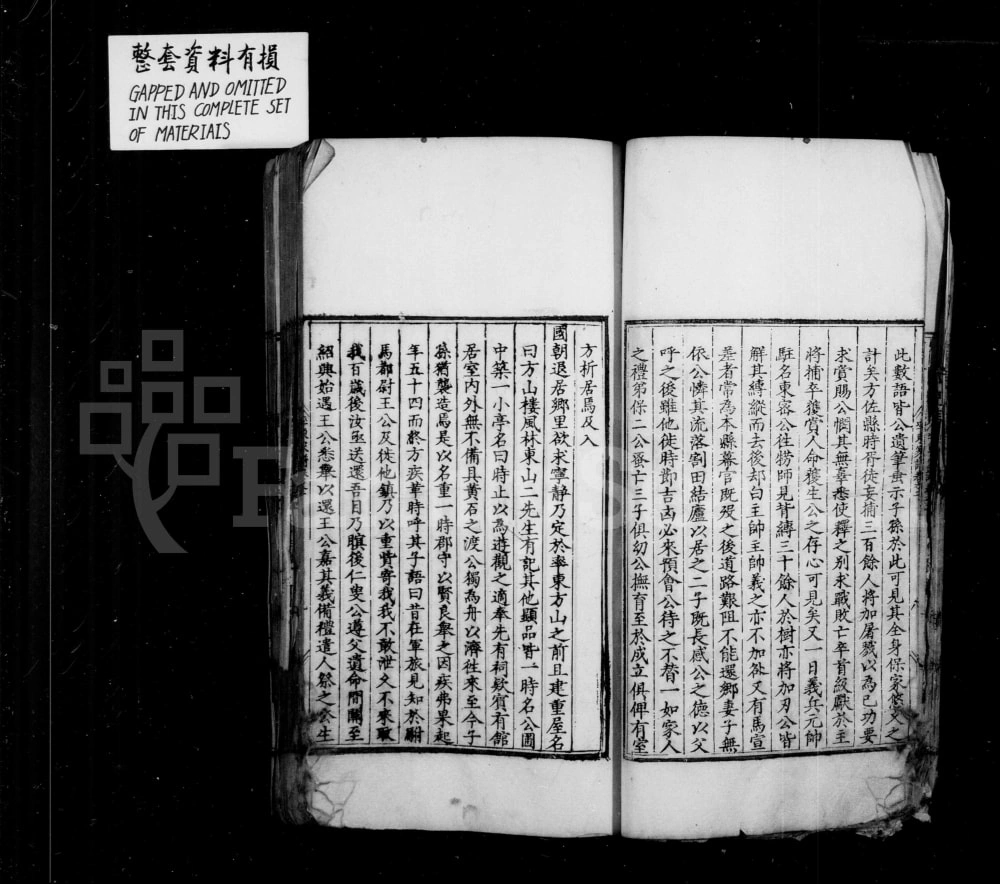 整套資料有損
GAPPED AND OMITTED
IN THIS COMPLETE SET
OF MATERIALS
此數語皆公遺筆蚤示子孫於此可見其全身保家悠久之
計矣方佐縣時胥徒妄捕三百餘人將加屠戮以為己功要
求賞賜公憫其無辜悉使釋之别求戰敗亡卒首級獻於主
將捕卒獲賞人命獲生公之存心可見矣又一日義兵元帥
駐名東密公往犒師見背縛三十餘人於樹亦將加刃公皆
解其縛縱而去後却白王帥王帥義之亦不加咎又有馬宣
差者常為本縣幕官既歿之後道路艱阻不能還鄉妻子無
依公憐其流落割田結廬以居之二子既長感公之德以父
呼之後雖他徙時節吉凶必來預會公待之不替一如家人
之禮弟保二公蚤亡三子俱幼公撫育至於成立俱俾有室
方析居焉及入
國朝退居鄉里欲求寧静乃定於率東方山之前且建重屋名
曰方山樓風林東山二先生有記其他顯品皆一時名公圃
中築一小亭名曰時止以為遊觀之適奉先有祠欵賓有舘
居室内外無不備具黄石之渡公獨為舟以濟徃來至今子
孫猶襲造焉是以名重一時郡守以賢良舉之因疾弗果起
年五十四而終方疾革時呼其子語曰昔在軍旅見知於駙
馬都尉王公及徙他鎮乃以重貲寄我我不敢泄久不來取
我百歲後汝亟送還吾目乃瞑後仁叟公遵父遺命間關至
紹興始遇王公悉舉以還王公嘉其義備禮遣人祭之公生